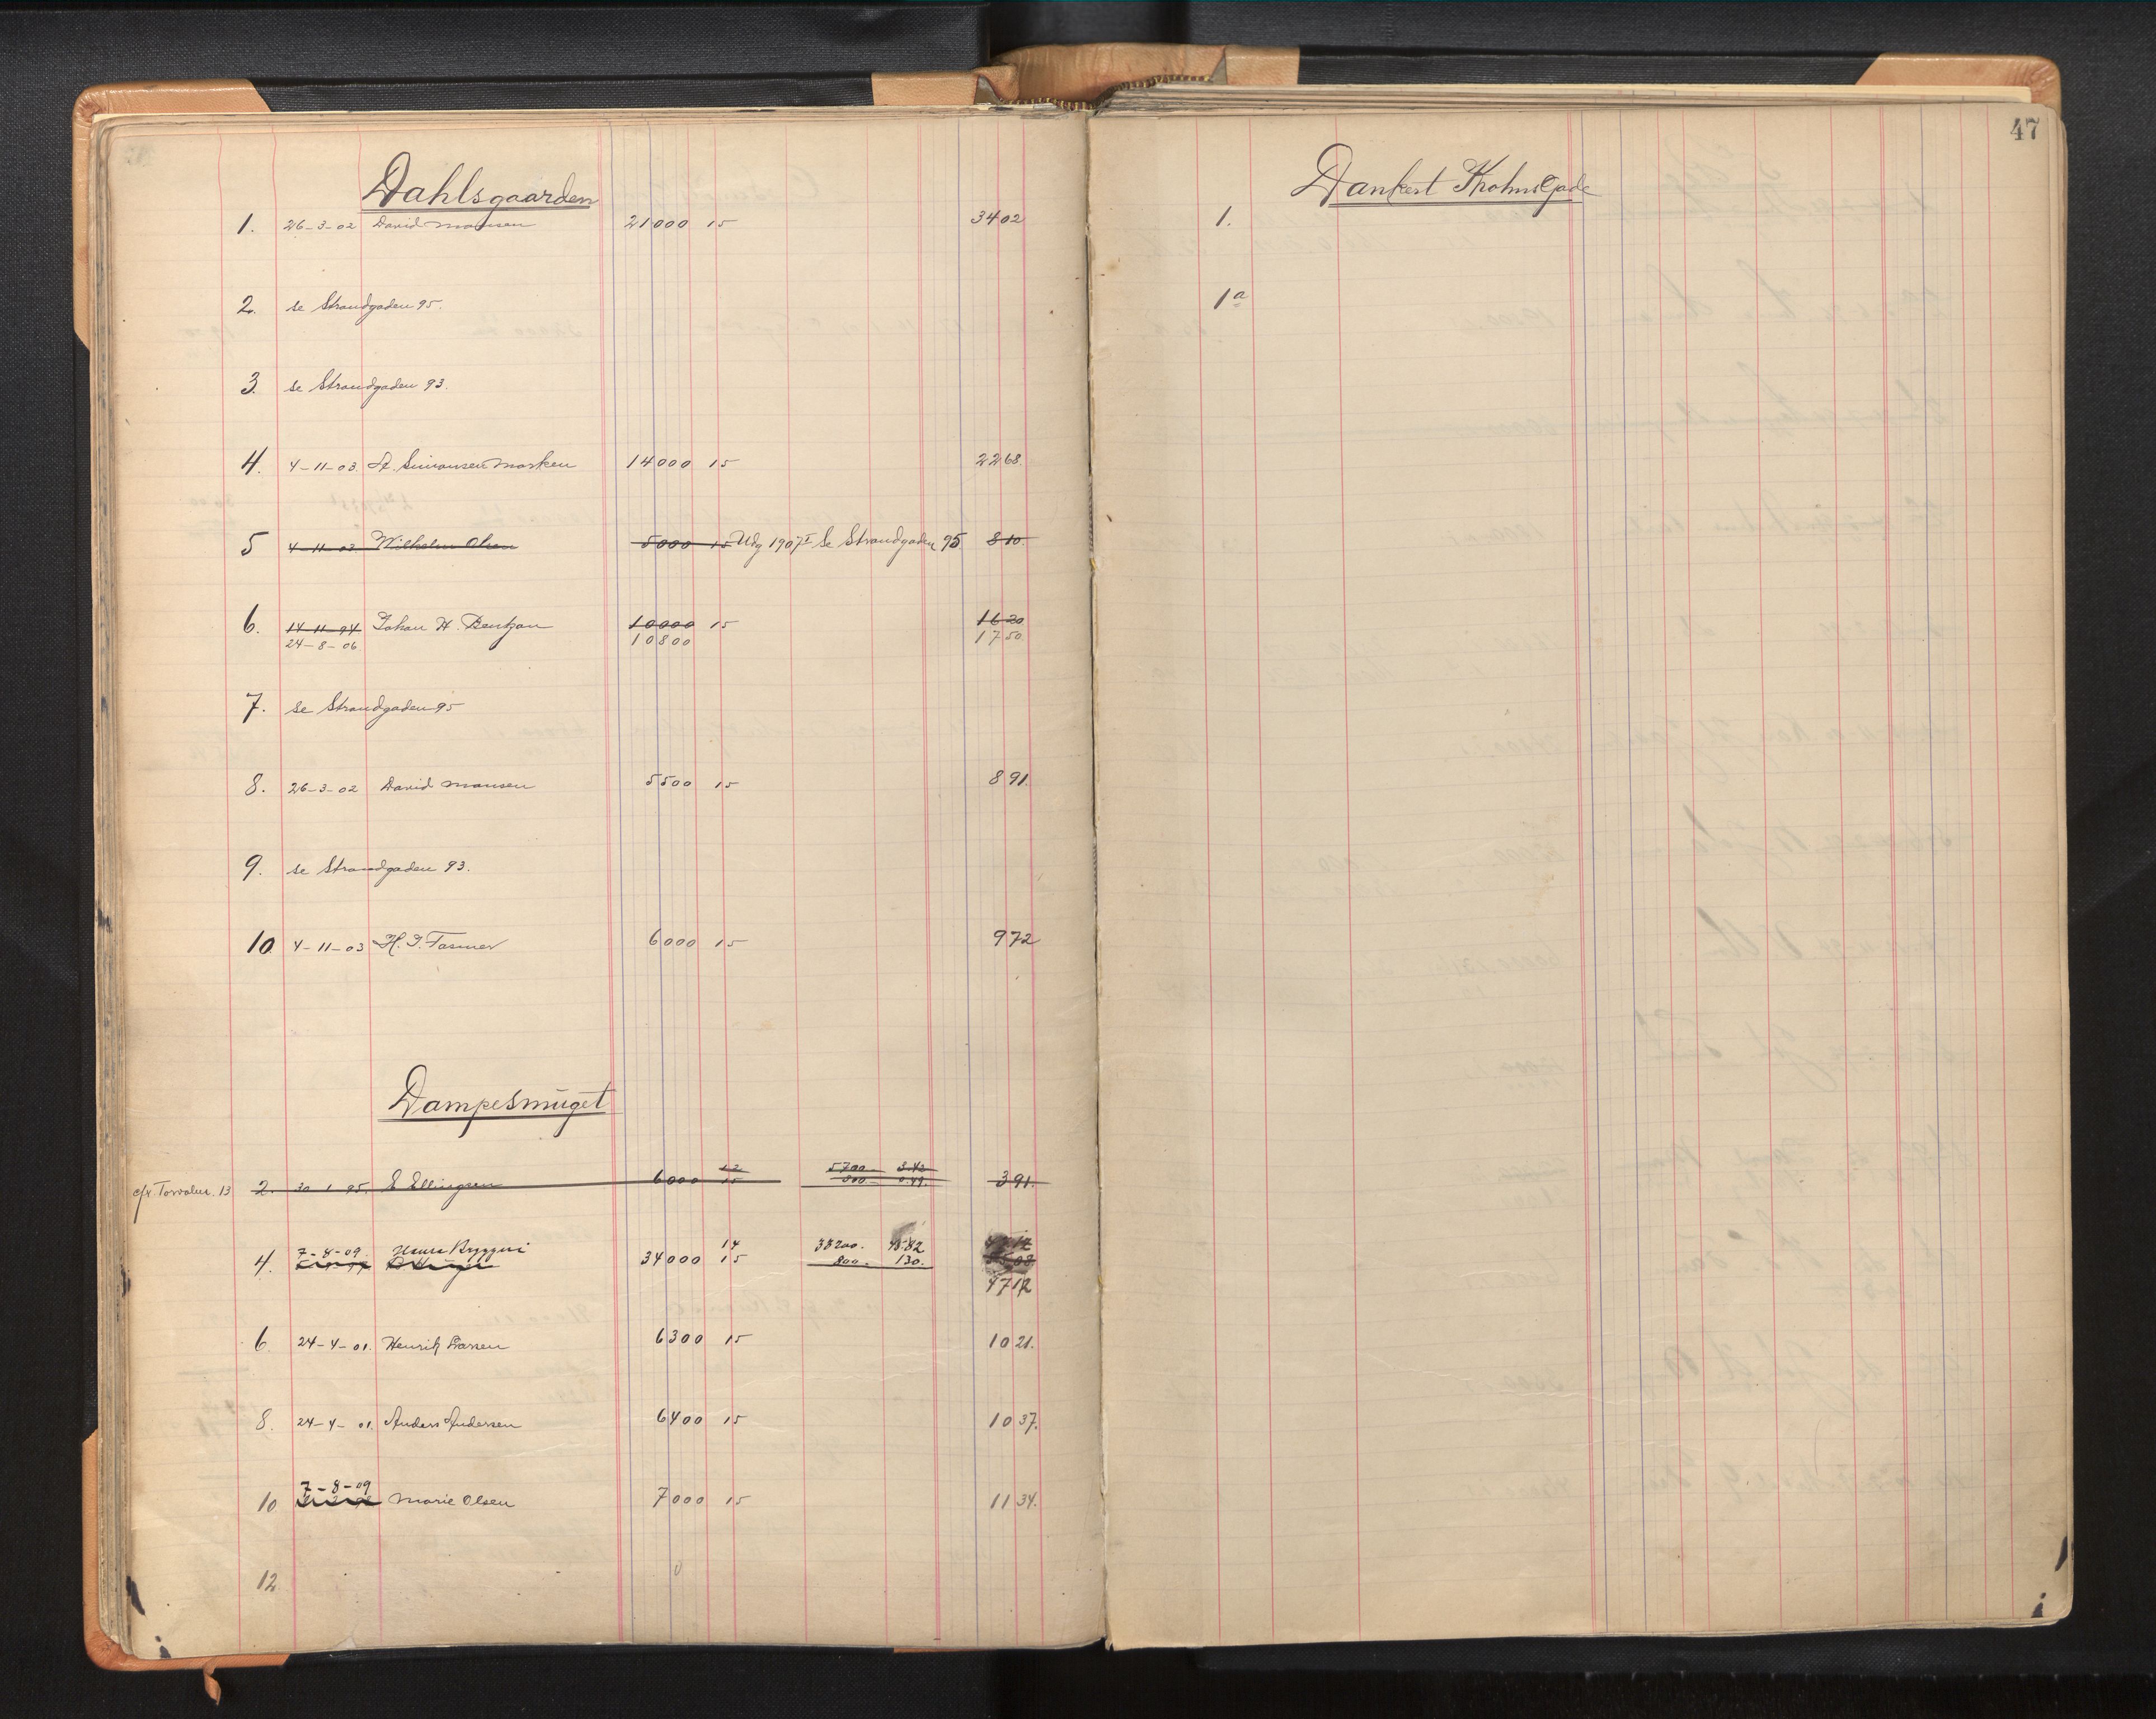 Dahlsgaarden
1. 26-3-02 David Monsen 21000 15 3402
2. se Strandgaden 95.
3. se Strandgaden 93.
4. 4-11-03. A. Simonsen Morken 14000 15 2268.
5 4-11-03 Wilhelm Olsen 5000 15 Udg 1907 I Se Strandgaden 95 810.
6. 14-11-94 Johan H. Bentzon 10000 15 1620
24-8-06 10800 1750
7. se Strandgaden 95
8. 26-3-02 David Monsen 5500 15 891.
9. se Strandgaden 93.
10 4-11-03 H. J. Fasmer 6000 15 972
Dampesmuget
12 5700 3.42
cfr. Torvalm. 13 2. 30-1-95. E Ellingsen 6000 15 300 0.49. 391.
7-8-09. 14 33200. 4582
4. 34000 15 800. 130.
4712
6. 24-4-01. Henrik Larsen 6300 15 1021.
8. 24-4-01. Anders Andersen 6400 15 1037.
7-8-09
10 Marie Olsen 7000 15 1134.
12
47
Dankert Krohns Gade
1.
1a